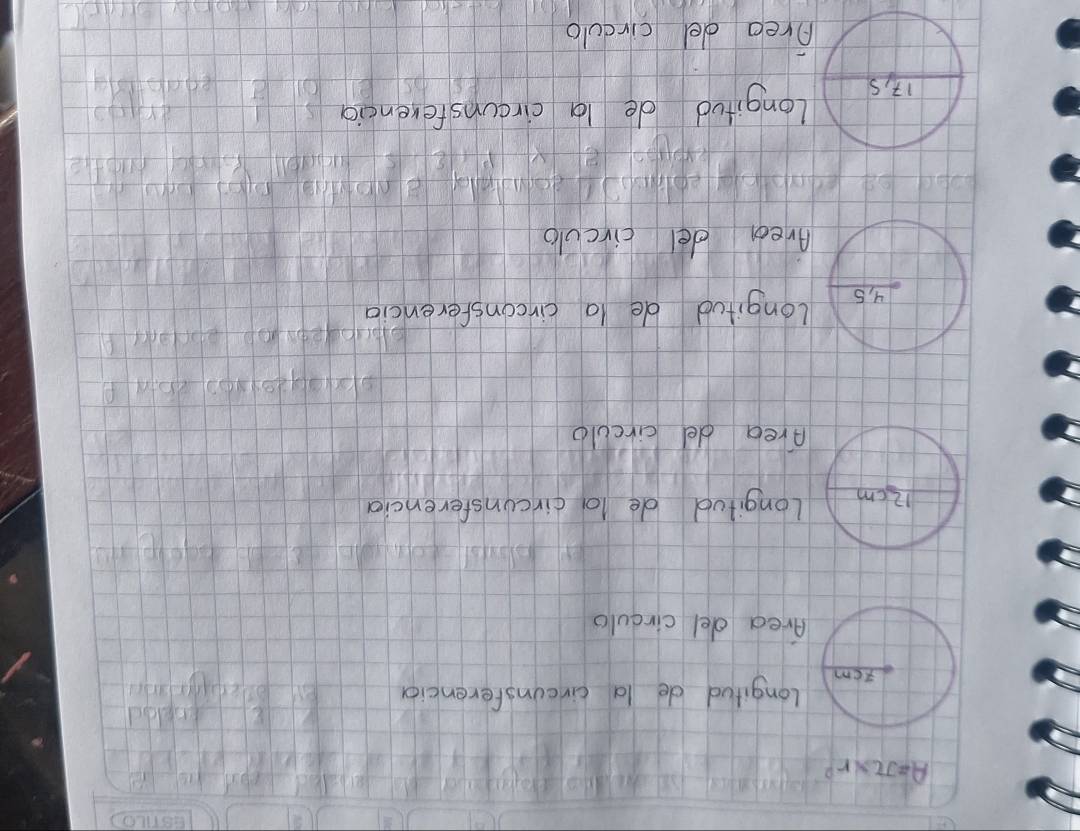 ESTILO
A=π×r²
7cm
Longitud de la circunsferencia
Área del circulo
12cm
Longitud de la circunsferencia
Área del circulo
4,5
Longitud de la circunsferencia
Área del circulo
17,5
Longitud de la circunsferencia
Área del circulo